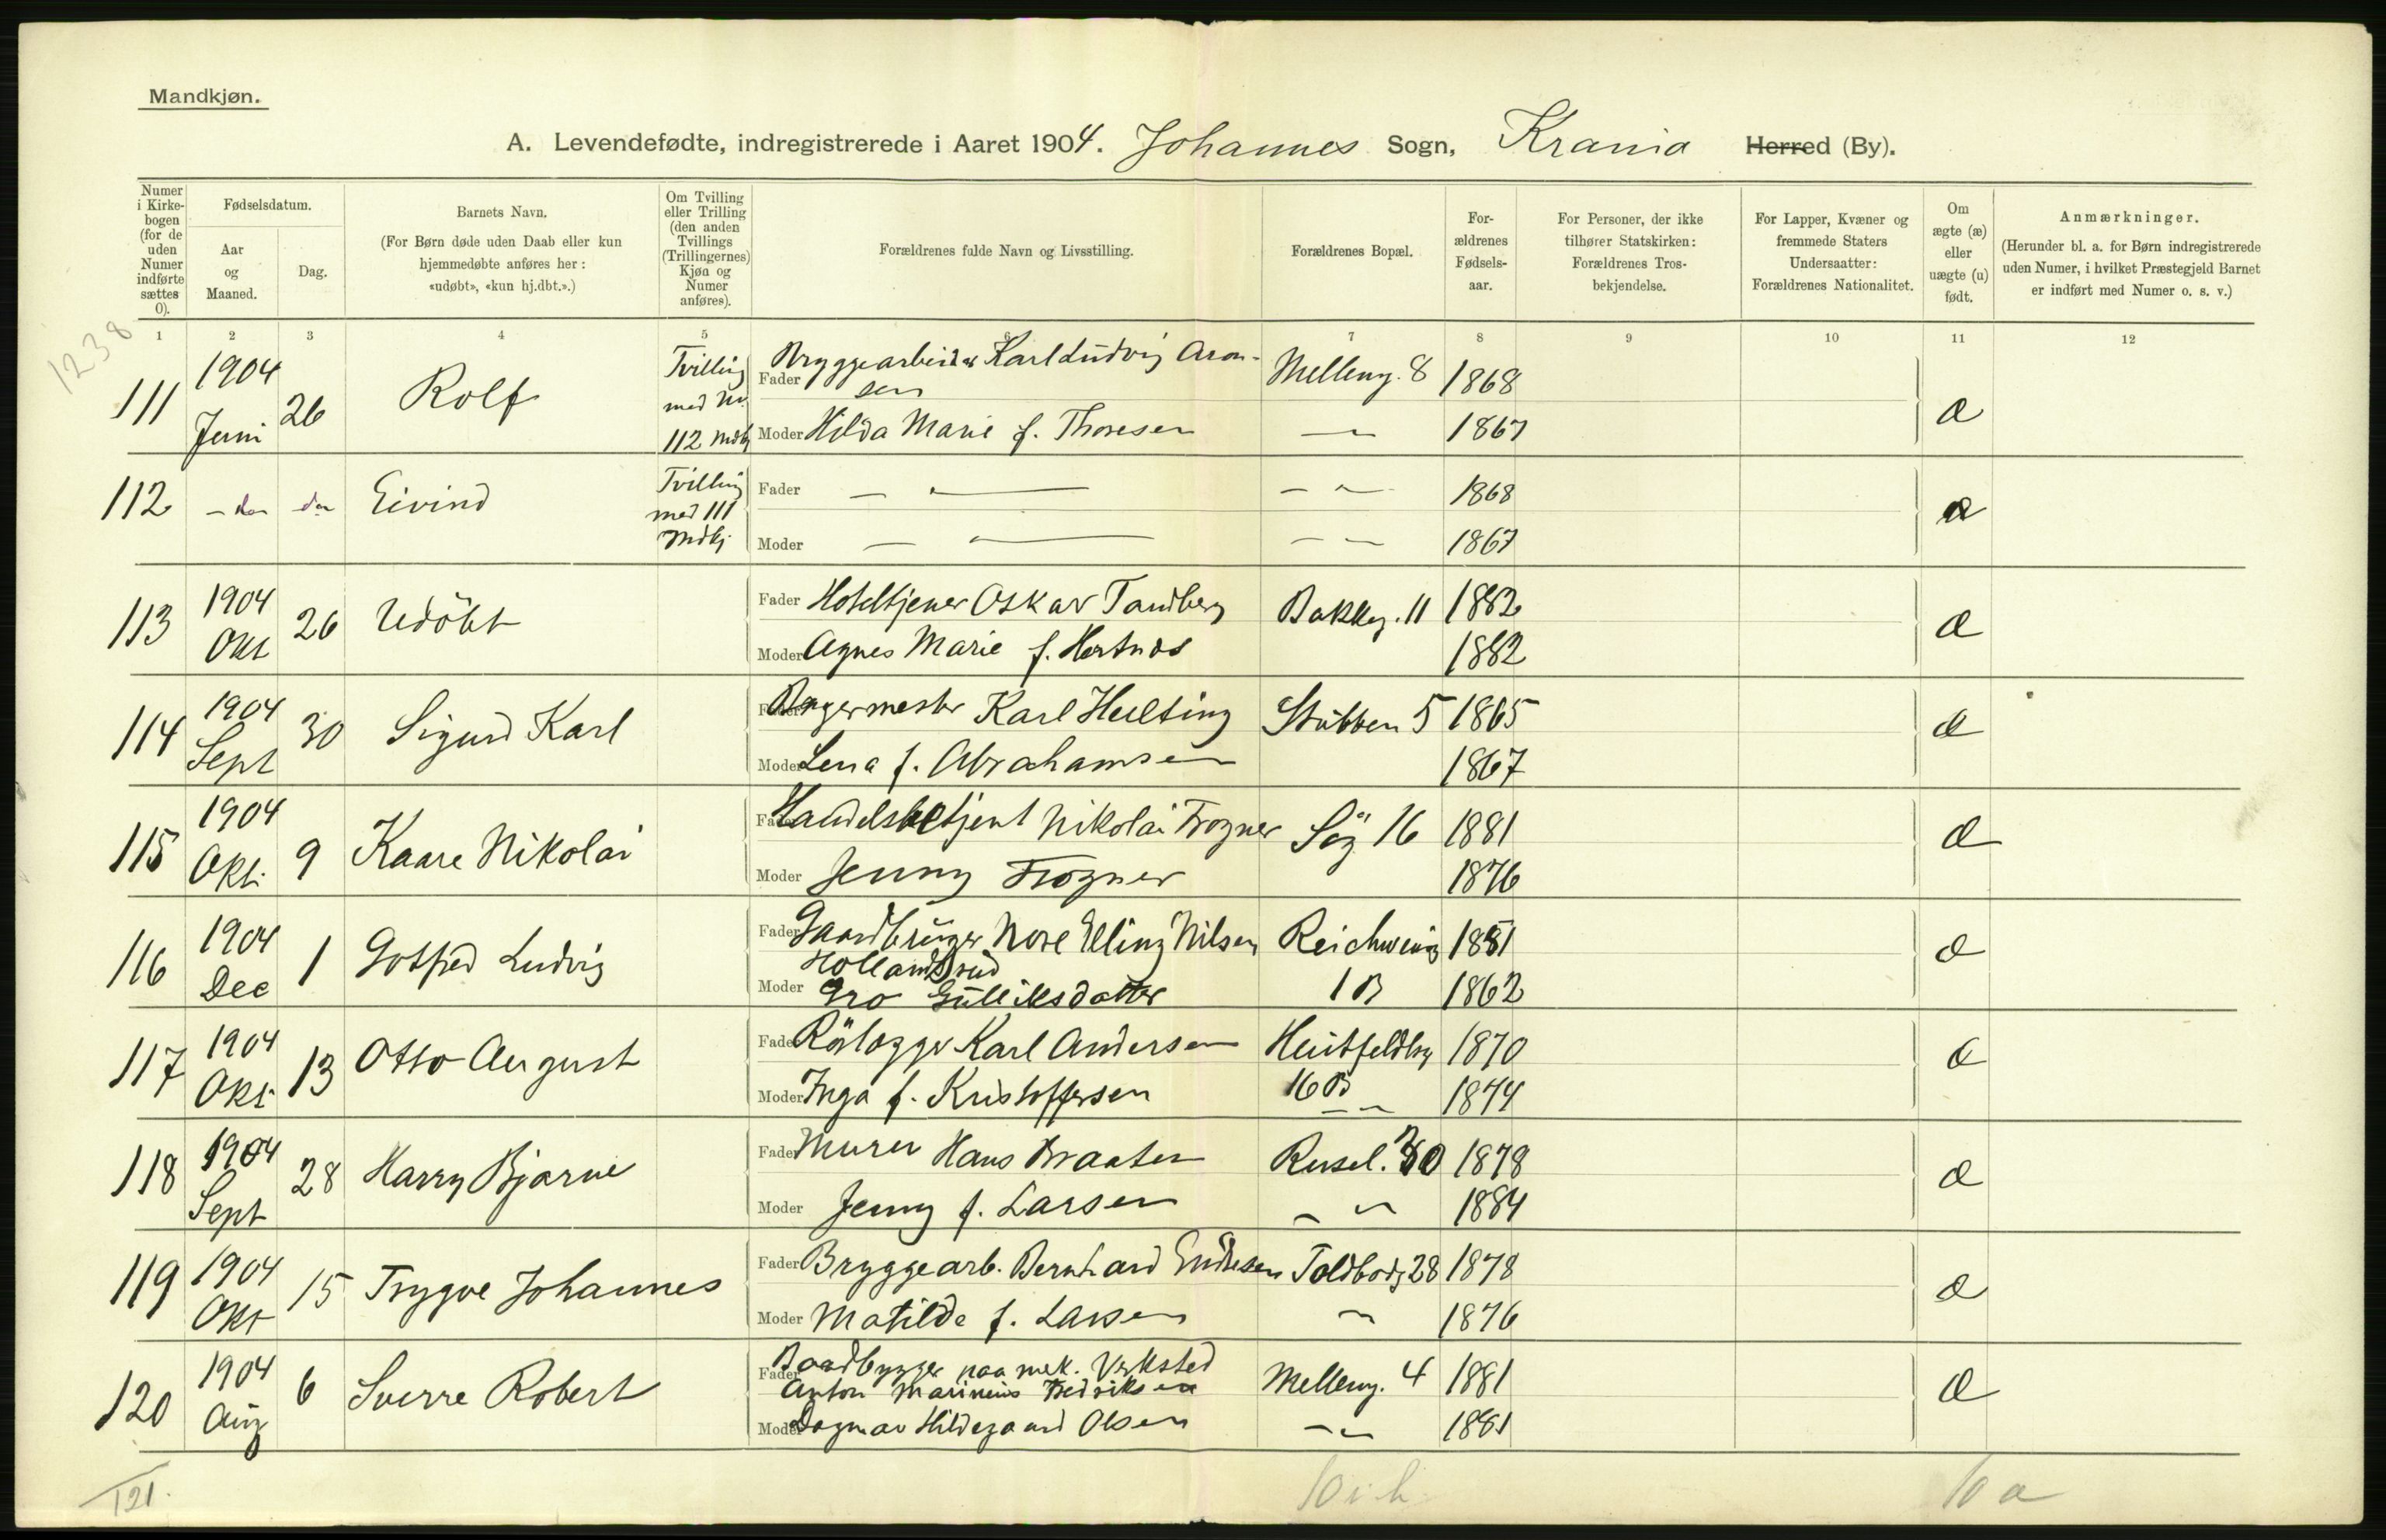 Mandkjøn.
A. Levendefødte, indregistrerede i Aaret 1904. Johannes Sogn, Krania Herred (By).
Numer i Kirkebogen (for de uden Numer indførte sættes 0).
Fødselsdatum.
Aar og Maaned.
Dag.
Barnets Navn.
(For Børn døde uden Daab eller kun hjemmedøbte anføres her: «udøbt», «kun hj.dbt.».)
Om Tvilling eller Trilling (den anden Tvillings (Trillingernes) Kjøn og Numer anføres).
Forældrenes fulde Navn og Livsstilling.
Forældrenes Bopæl.
Forældrenes Fødselsaar.
For Personer, der ikke tilhører Statskirken: Forældrenes Trosbekjendelse.
For Lapper, Kvæner og fremmede Staters Undersaatter: Forældrenes Nationalitet.
Om ægte (æ) eller uægte (u) født.
Anmærkninger.
(Herunder bl. a. for Børn indregistrerede uden Numer, i hvilket Præstegjeld Barnet er indført med Numer o. s. v.)
1 2 3 4 5 6 7 8 9 10 11 12
1238
111 1904 Juni 26 Rolf Tvilling med No. 112 Mdkj
Fader Bryggearbeider Karl Ludvig Aronsen Melleng. 8 1868
Moder Hilda Marie f. Thoresen — 1867 æ
112 — do do Eivind Tvilling med 111 Mdkj
Fader — — — — 1868
Moder — — — — 1867 æ
113 1904 Okt 26 Udöbt
Fader Hoteltjener Oskar Tandberg Bakkeg. 11 1882
Moder Agnes Marie f. Hertnæs 1882 æ
114 1904 Sept 30 Sigurd Karl
Fader Bagermester Karl Hulting Stubben 5 1865
Moder Lena f. Abrahamsen 1867 æ
115 1904 Okt. 9 Kaare Nikolai
Fader Handelsbetjent Nikolai Frogner Sög 16 1881
Moder Jenny Frogner 1876 æ
116 1904 Dec 1 Gotfred Ludvig
Fader Gaardbruger Nore Elling Nilsen Hollandsrud Reichweing 1851
Moder Gro Gulliksdatter 1 B 1862 æ
117 1904 Okt. 13 Otto August
Fader Rörlægger Karl Andersen Huitfeldtsg 1870
Moder Inga f. Kristoffersen 16 B — — 1874 æ
118 1904 Sept 28 Harry Bjarne
Fader Murer Hans Braaten Rusel. 30 1878
Moder Jenny f. Larsen — — 1884 æ
119 1904 Okt 15 Trygve Johannes
Fader Bryggearb. Bernhard Endresen Toldbodg 28 1878
Moder Matilde f. Larsen — 1876 æ
120 1904 Aug 6 Sverre Robert
Fader Baadbygger paa mek. Verksted
Anton Marinius Fredriksen Melleng. 4 1881
Moder Dagmar Hildegaard Olsen — — 1881 æ
121.
10 i h
10 æ